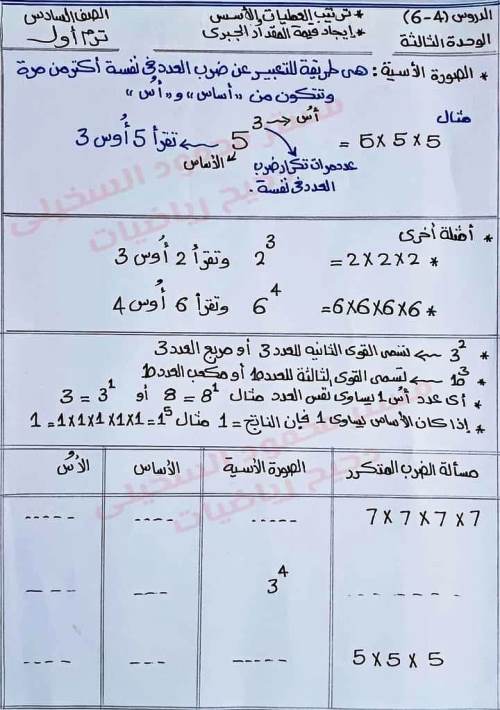 الدروس (4-6)
الوحدة الثالثة
* ترتيب العمليات والأسس
* إيجاد قيمة المقدار الجبرى
الصف السادس
ترم أول
* الصورة الأسية: هى طريقة للتعبير عن ضرب العدد فى نفسة أكثر من مرة
وتتكون من "أساس" و "أُس"
مثال
5 × 5 × 5 = 5³ تقرأ 5 أُوس 3
أُس
الأساس
عدد مرات تكرار ضرب
العدد فى نفسة.
* أمثلة أخرى
* 2 × 2 × 2 = 2³ وتقرأ 2 أُوس 3
* 6 × 6 × 6 × 6 = 6⁴ وتقرأ 6 أُوس 4
* 3² تسمى القوى الثانيه للعدد 3 أو مربع العدد 3
* 10³ تسمى القوى الثالثة للعدد 10 أو مكعب العدد 10
* أى عدد أُس 1 يساوى نفس العدد مثال 8¹ = 8 أو 3¹ = 3
* إذا كان الأساس يساوى 1 فإن الناتج = 1 مثال 1⁵ = 1×1×1×1×1 = 1
مسألة الضرب المتكرر الصورة الأسية الأساس الأُس
7 × 7 × 7 × 7 ----- ---- -----
------- 3⁴ ---- ---
5 × 5 × 5 ----- ---- ----
مستر محمود السخيلى
رياضيات
مستر محمود السخيلى
رياضيات